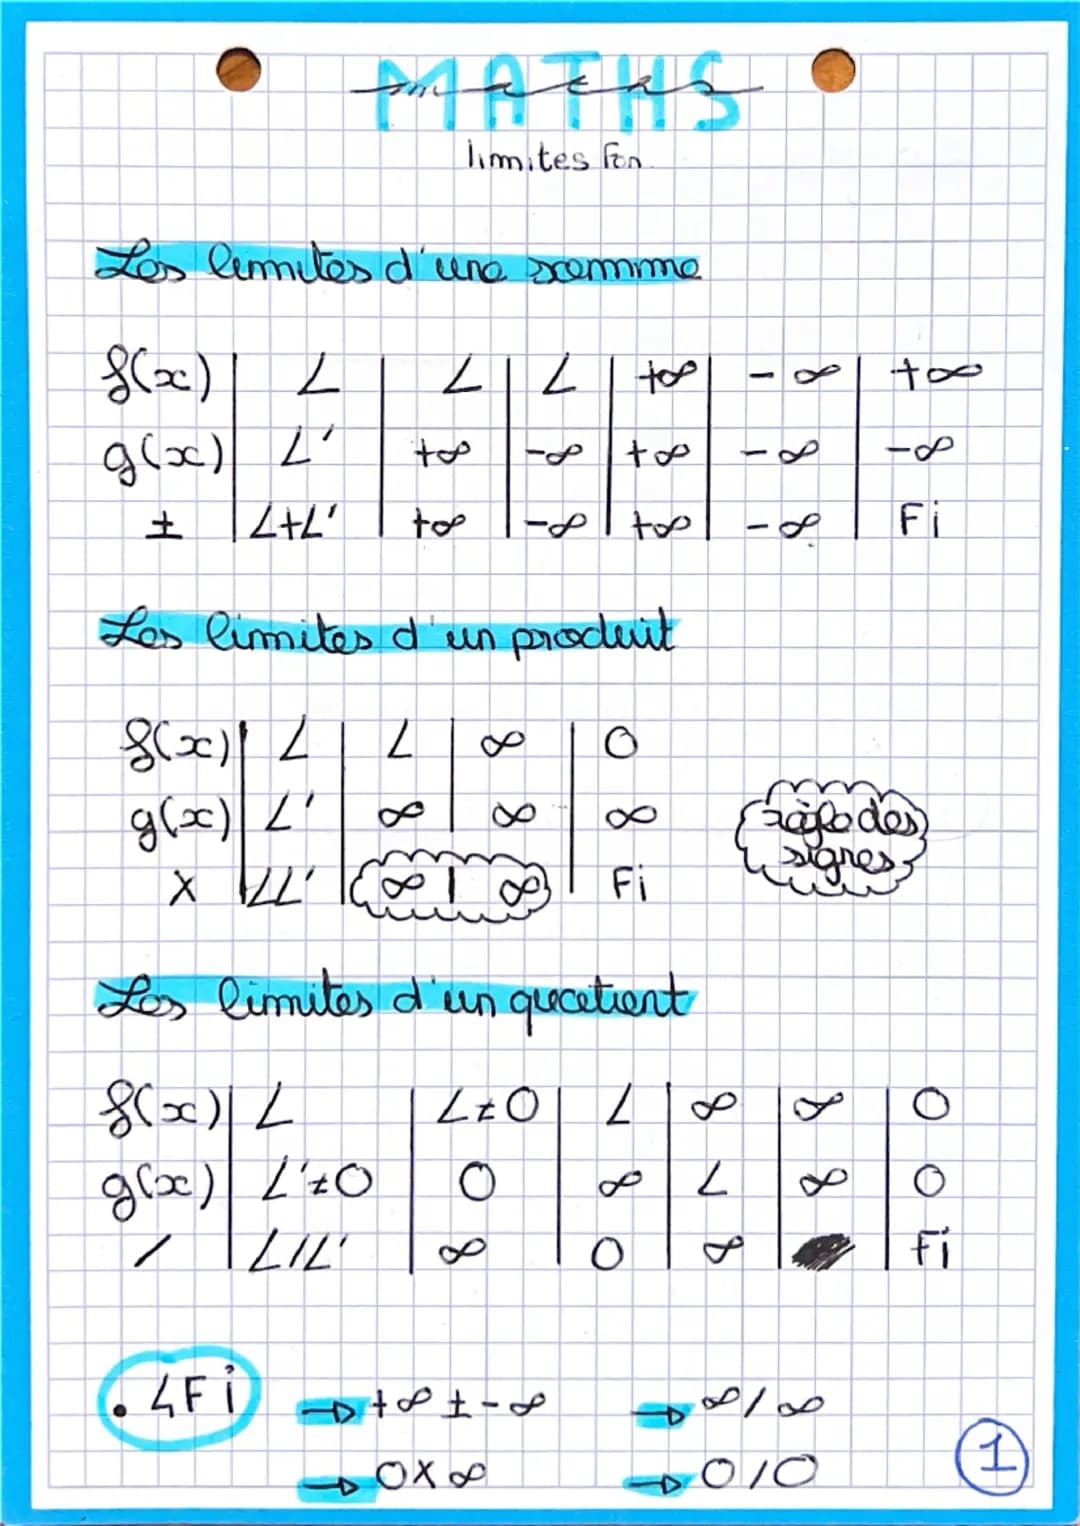 MATHS
maths
limites Fon
Les limites d'une somme
f(x) | L | L | L | +∞ | -∞ | +∞
g(x) | L' | +∞ | -∞ | +∞ | -∞ | -∞
± | L+L' | +∞ | -∞ | +∞ | -∞ | Fi
Les limites d'un produit
f(x) | L | L | ∞ | 0
g(x) | L' | ∞ | ∞ | ∞
X | LL' | ∞ | ∞ | Fi
règle des
signes
Les limites d'un quotient
f(x) | L | L≠0 | L | ∞ | ∞ | 0
g(x) | L'≠0 | 0 | ∞ | L | ∞ | 0
/ | L/L' | ∞ | 0 | ∞ | | Fi
. 4Fi → +∞ ± -∞ → ∞/∞
→ 0X∞ → 0/0
1